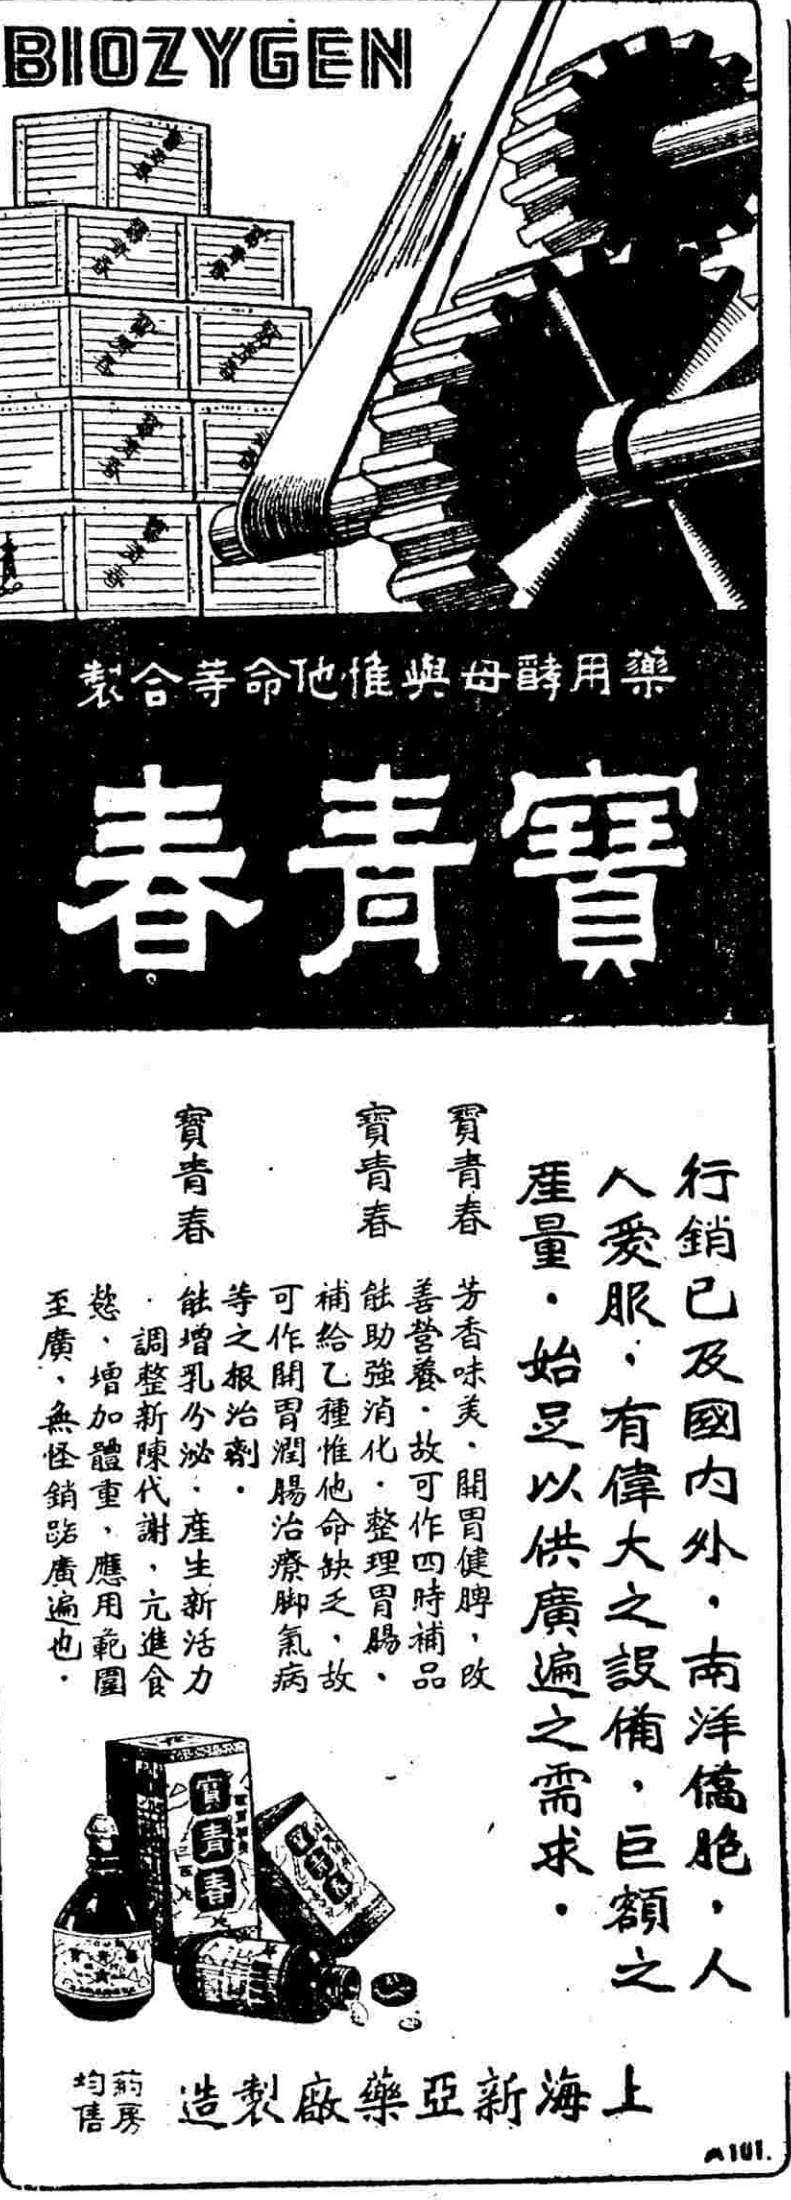 BIOZYGEN
藥用酵母與惟他命等合製
寶青春
行銷已及國内外，南洋僑胞，人
人愛服，有偉大之設備，巨額之
產量，始足以供廣遍之需求。
寶青春 芳香味美，開胃健脾，改
善營養，故可作四時補品
寶青春 能助強消化，整理胃腸，
補給乙種惟他命缺乏，故
可作開胃潤腸治療脚氣病
等之根治劑。
寶青春 能增乳分泌，產生新活力
，調整新陳代謝，亢進食
慾，增加體重，應用範圍
至廣，無怪銷路廣遍也。
寶青春
寶青春
上海新亞藥廠製造
葯房
均售
M101.